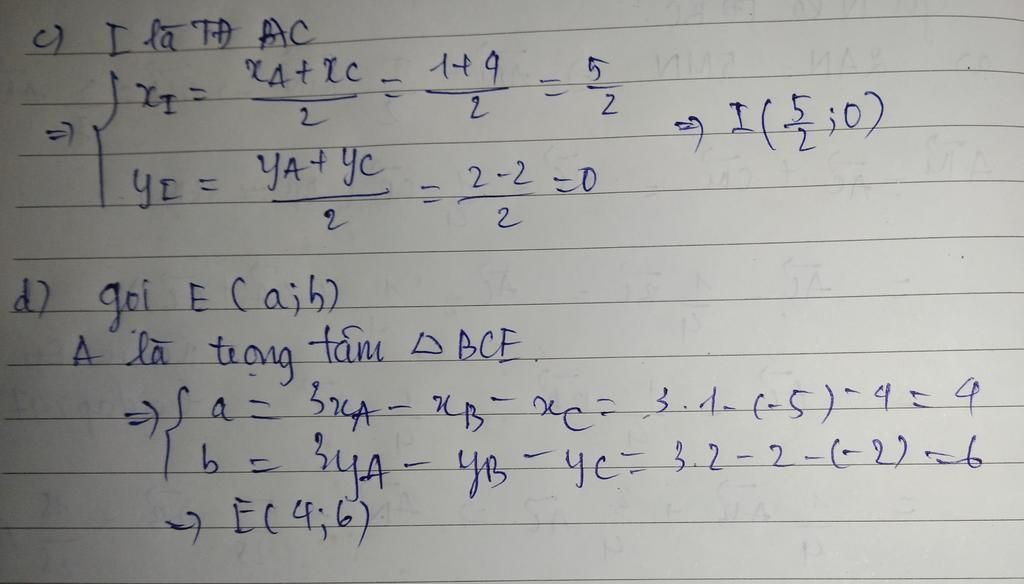 c) I là TĐ AC
=> { xI = (xA + xC)/2 = (1+4)/2 = 5/2
yI = (yA + yC)/2 = (2-2)/2 = 0
=> I(5/2; 0)
d) gọi E(a;b)
A là trọng tâm △BCE
=> { a = 3xA - xB - xC = 3.1 - (-5) - 4 = 4
b = 3yA - yB - yC = 3.2 - 2 - (-2) = 6
=> E(4;6)